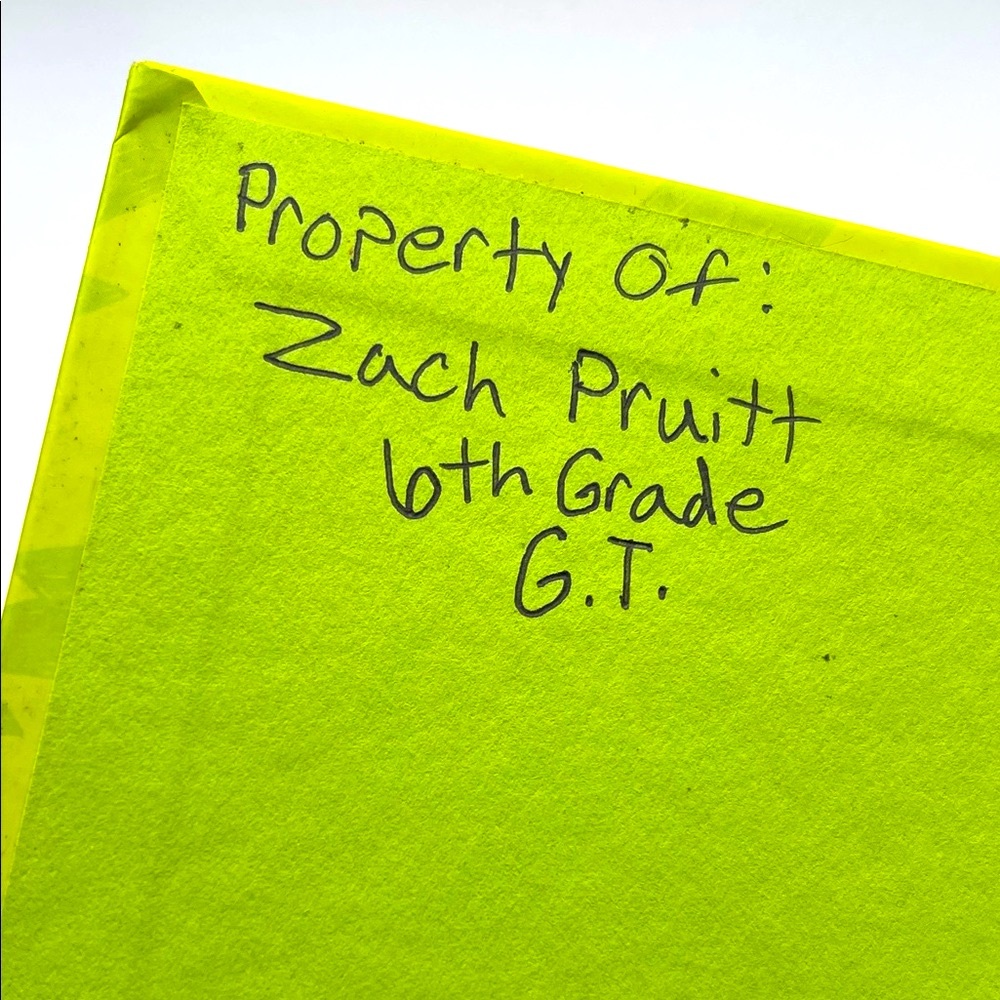 Property Of:
Zach Pruitt
6th Grade
G.T.